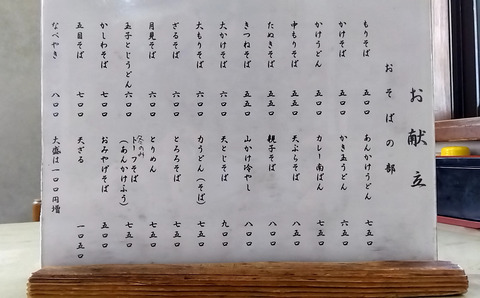 お献立
おそばの部
もりそば 五五〇
かけそば 五五〇
かけうどん 五五〇
中もりそば 五五〇
たぬきそば 五五〇
きつねそば 五五〇
大かけそば 六〇〇
大もりそば 六〇〇
ざるそば 六〇〇
月見そば 六〇〇
玉子とじうどん 六〇〇
かしわそば 七〇〇
五目そば 七〇〇
なべやき 八〇〇
あんかけうどん 七五〇
かき玉うどん 六五〇
カレー南ばん 七五〇
天ぷらそば 八五〇
親子そば 八〇〇
山かけ冷やし 八〇〇
天とじそば 九〇〇
力うどん(そば) 七五〇
とろろそば 七五〇
とりめん 七五〇
冬のみ
トーフそば 七五〇
(あんかけふう)
おみやげそば 七五〇
天ざる 一〇五〇
大盛は一〇〇円増